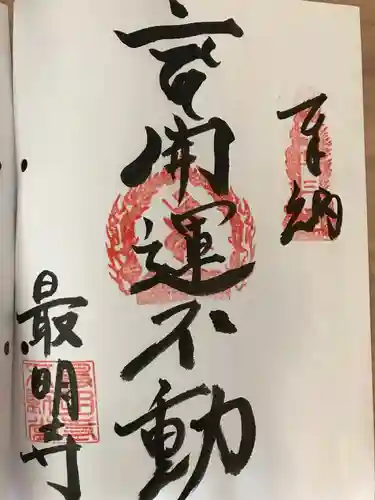 奉納
開運不動
最明寺